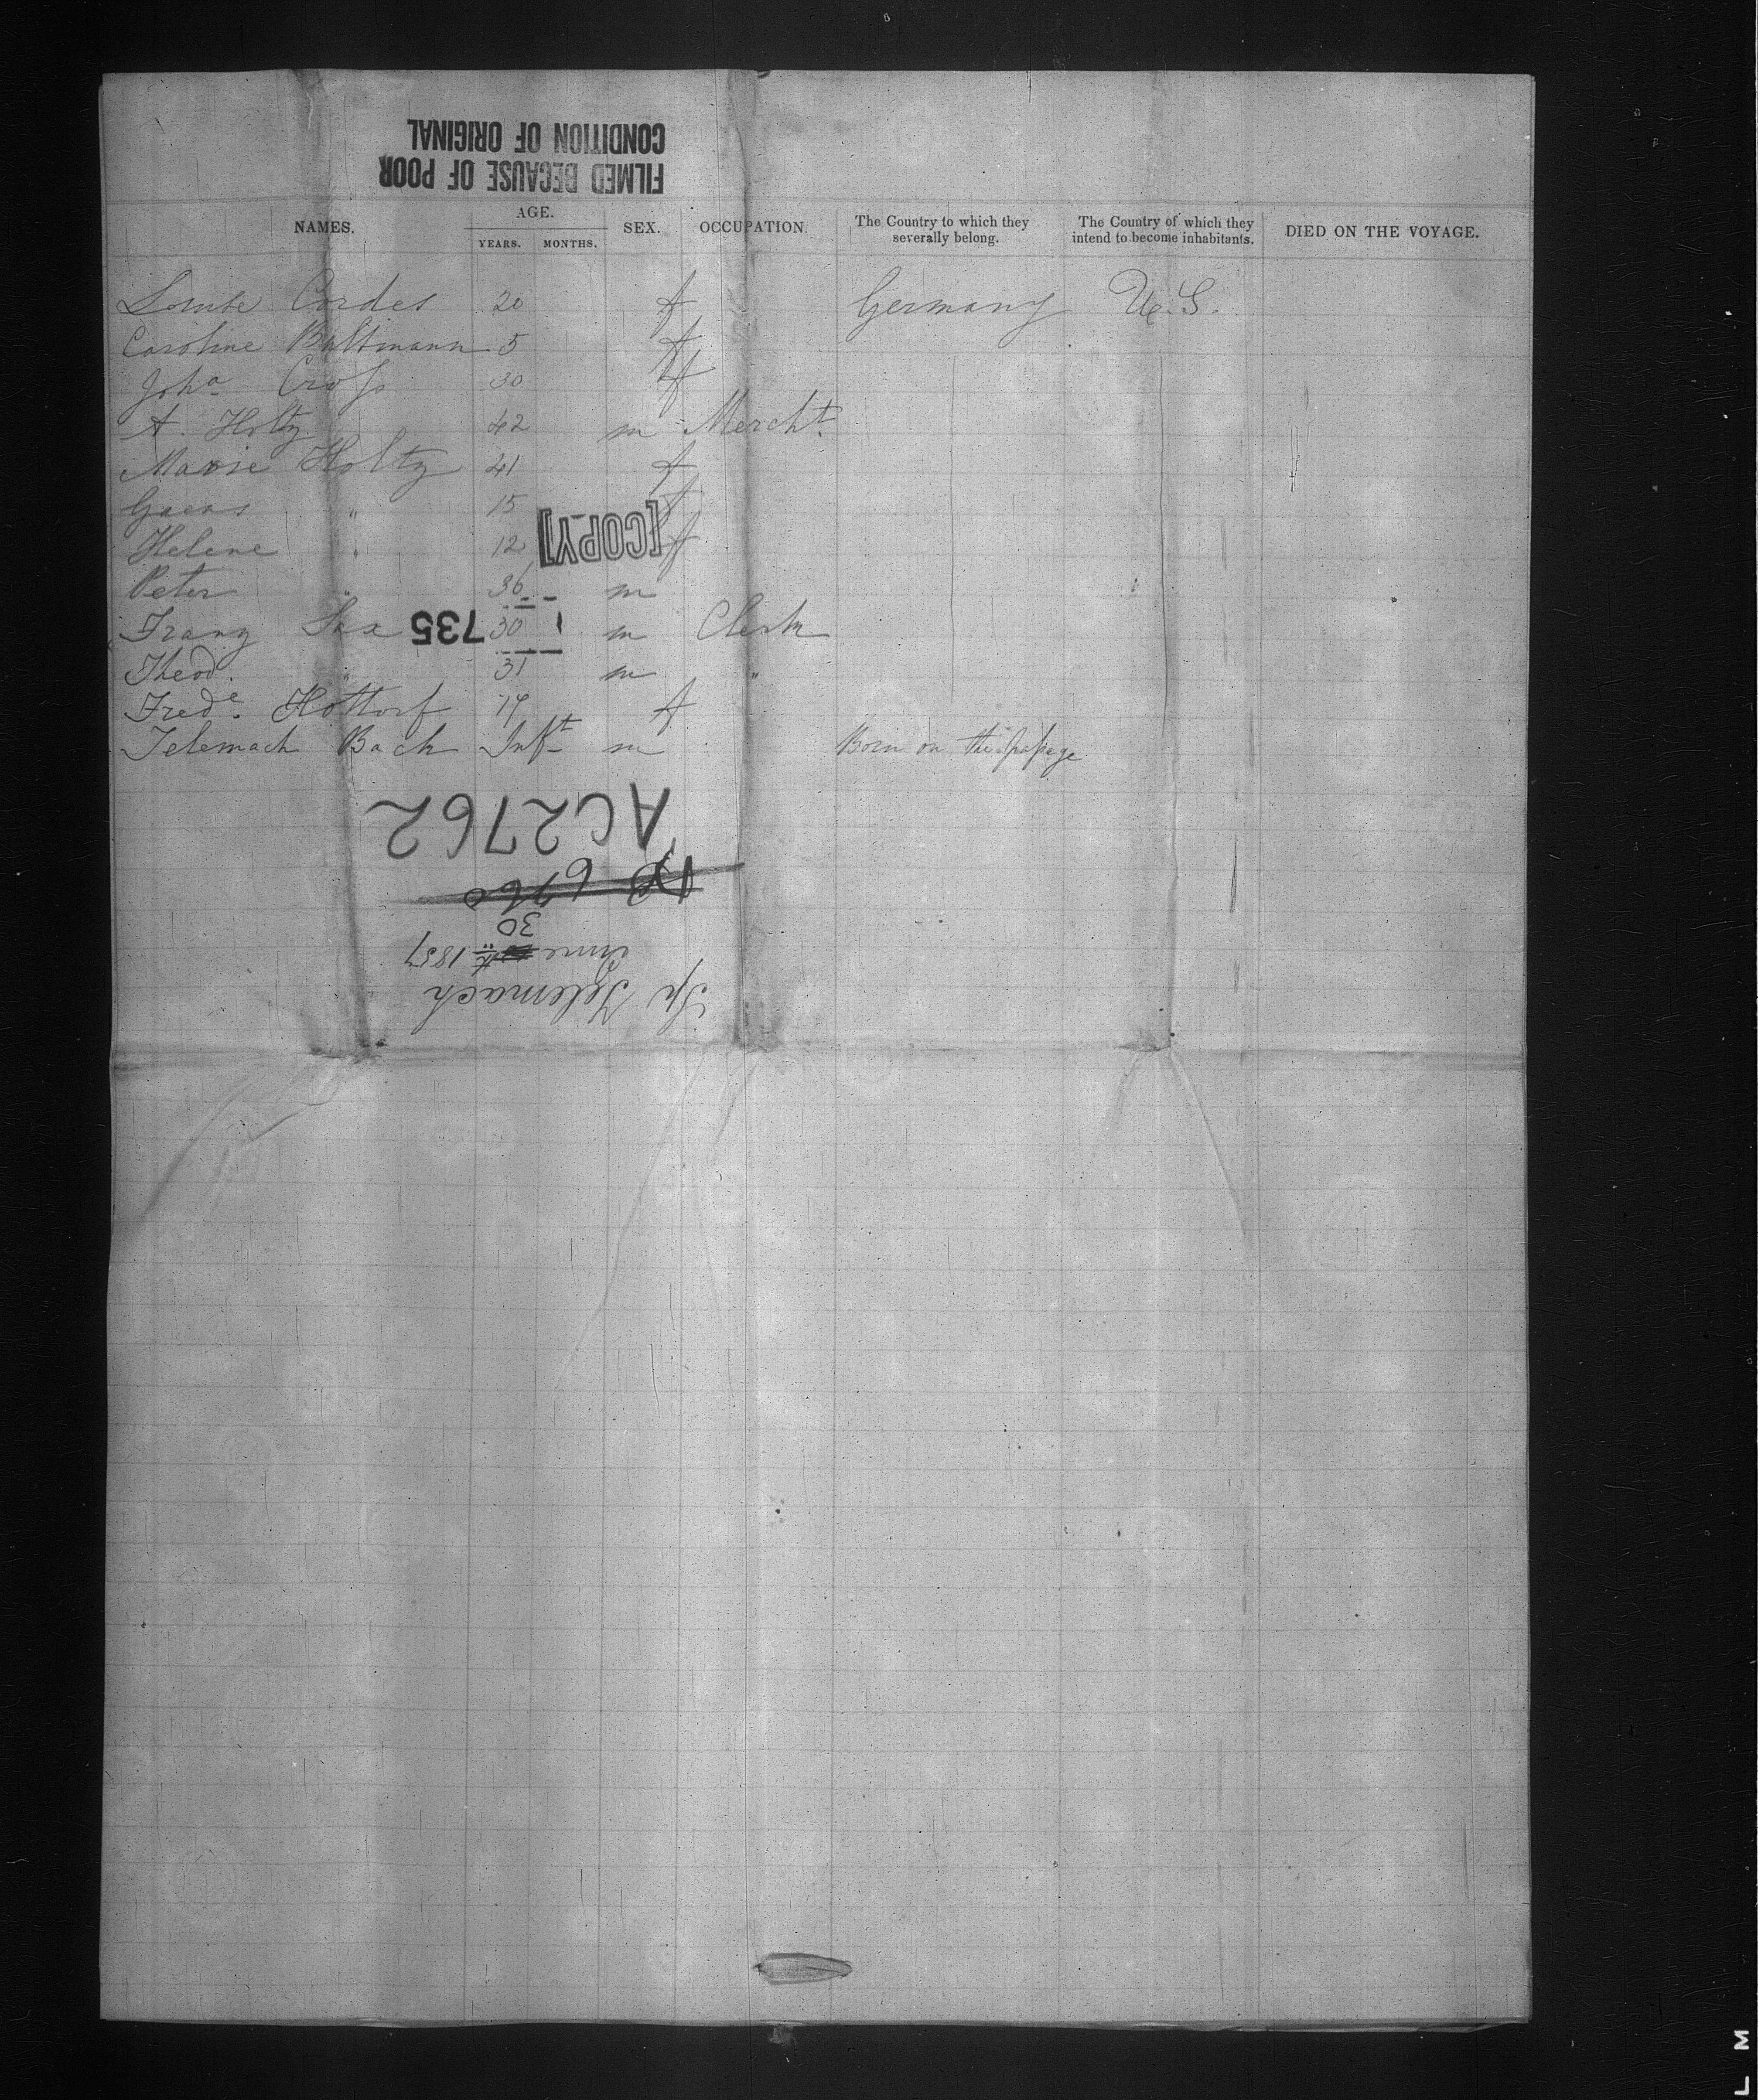 FILMED BECAUSE OF POOR
CONDITION OF ORIGINAL
NAMES. AGE. YEARS. MONTHS. SEX. OCCUPATION. The Country to which they severally belong. The Country of which they intend to become inhabitants. DIED ON THE VOYAGE.
Louise Cordes 20 f Germany U.S.
Caroline Bultmann 5 f
Joha Cross 30 f
A. Holtz 42 m Mercht
Marie Holtz 41 f
" 15 f
Helene " 12 f
[COPY]
Peter " 36 m
Franz Sax 30 m Clerk
735 1
Theod. " 31 m "
Frede Hottorf 19 f
Telemach Bach Inft m Born on the passage
AC2762
30
1857
Sp Telemach
L M